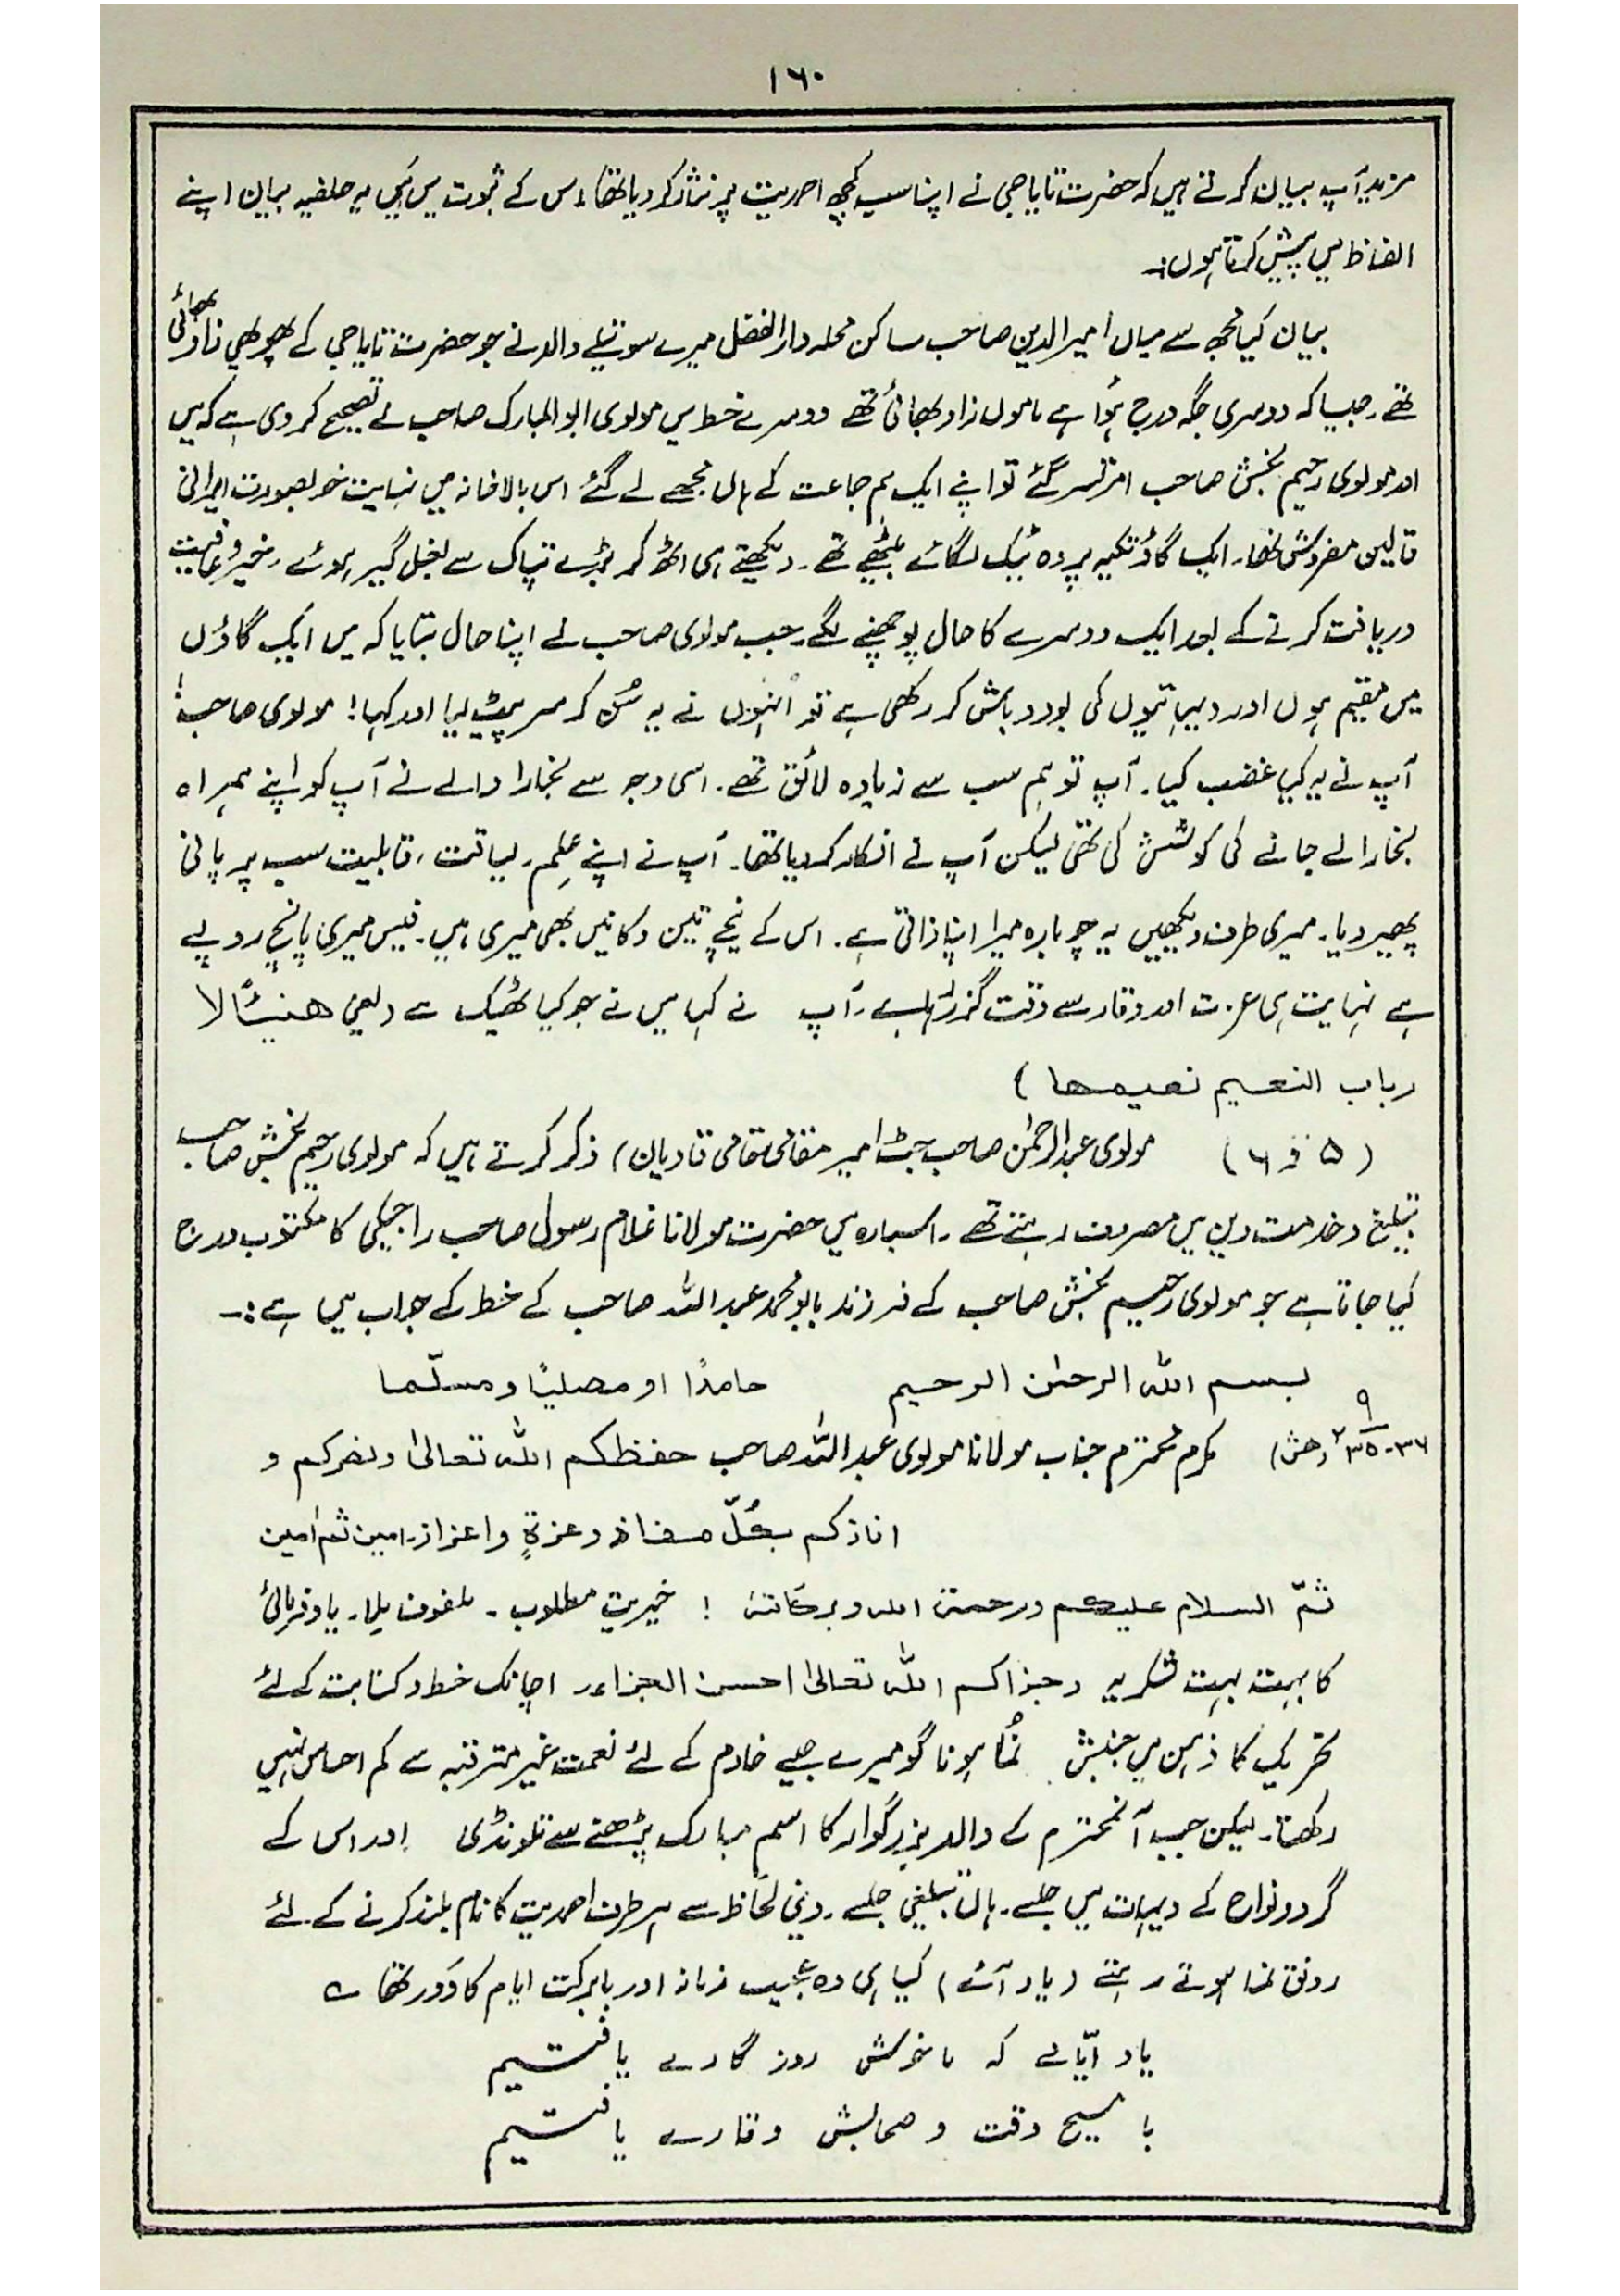 ۱۶۰
مزید آپ بیان کرتے ہیں کہ حضرت تایا جی نے اپنا سب کچھ احمدیت پر نثار کر دیا تھا، اس کے ثبوت میں مَیں یہ حلفیہ بیان اپنے
الفاظ میں پیش کرتا ہوں:۔
بیان کیا مجھ سے میاں امیر الدین صاحب ساکن محلہ دار الفضل میرے سوتیلے والد نے جو حضرت تایا جی کے پھوپھی زاد بھائی
تھے۔ جیسا کہ دوسری جگہ درج ہُوا ہے ماموں زاد بھائی تھے دوسرے خط میں مولوی ابو المبارک صاحب نے تصحیح کر دی ہے کہ میں
اور مولوی رحیم بخش صاحب امرتسر گئے تو اپنے ایک ہم جماعت کے ہاں مجھے لے گئے اس بالا خانہ میں نہایت خوبصورت ایرانی
قالین مفروش تھا۔ ایک گاؤ تکیہ پر وہ ٹیک لگائے بیٹھے تھے۔ دیکھتے ہی اٹھ کر بڑے تپاک سے بغل گیر ہوئے۔ خیر و عافیت
دریافت کرنے کے بعد ایک دوسرے کا حال پوچھنے لگے۔ جب مولوی صاحب نے اپنا حال بتایا کہ میں ایک گاؤں
میں مقیم ہوں اور دیہاتیوں کی بود و باش کر رکھی ہے تو اُنہوں نے یہ سُن کر سر پیٹ لیا اور کہا! مولوی صاحب!
آپ نے یہ کیا غضب کیا۔ آپ تو ہم سب سے زیادہ لائق تھے۔ اسی وجہ سے بخارا والے نے آپ کو اپنے ہمراہ
بخارا لے جانے کی کوشش کی تھی لیکن آپ نے انکار کر دیا تھا۔ آپ نے اپنے عِلم۔ لیاقت، قابلیت سب پر پانی
پھیر دیا۔ میری طرف دیکھیں یہ چوبارہ میرا اپنا ذاتی ہے۔ اس کے نیچے تین دکانیں بھی میری ہیں۔ فیس میری پانچ روپے
ہے نہایت ہی عزت اور وقار سے وقت گزر رہا ہے۔ آپ نے کہا میں نے جو کیا ٹھیک ہے (یعنی هنيئًا لا
رباب النعيم نعيمها)
(۵ و ۶) مولوی عبد الرحمٰن صاحب جٹ امیر مقامی مقامی قادیان) ذکر کرتے ہیں کہ مولوی رحیم بخش صاحب
تبلیغ و خدمت دین میں مصروف رہتے تھے۔ اس بارہ میں حضرت مولانا غلام رسول صاحب راجیکی کا مکتوب درج
کیا جاتا ہے جو مولوی رحیم بخش صاحب کے فرزند بابو محمد عبد اللہ صاحب کے خط کے جواب میں ہے:۔
بسم اللہ الرحمٰن الرحیم حامدًا او مصلیًا و مسلّما
۹
۳۶-۲۳۵ (ھش) مکرم محترم جناب مولانا مولوی عبد اللہ صاحب حفظکم اللہ تعالیٰ و نصرکم و
افازکم بکُلّ مفاز و عزۃٍ و اعزاز۔ امین ثم امین
ثمّ السلام علیکم ورحمۃ اللہ وبرکاتہ! خیریت مطلوب۔ ملفوف مِلا۔ یاد فرمائی
کا بہت بہت شکریہ وجزاکم اللہ تعالیٰ احسن الجزاء۔ اچانک خط و کتابت کے لئے
تحریک کا ذہن میں جنبش نُما ہونا گو میرے جیسے خادم کے لئے نعمت غیر مترقبہ سے کم احساس نہیں
رکھتا۔ لیکن جب آنمحترم کے والد بزرگوار کا اسم مبارک پڑھنے سے تلونڈی اور اس کے
گرد و نواح کے دیہات میں جلسے۔ ہاں تبلیغی جلسے۔ دینی لحاظ سے ہر طرف احمدیت کا نام بلند کرنے کے لئے
رونق نما ہوتے رہتے (یاد آئے) کیا ہی وہ عجیب زمانہ اور بابرکت ایام کا دَور تھا ؎
یاد ایّامے کہ ما خوش روز گارے یافتیم
با مسیح وقت و صحابش وقارے یافتیم